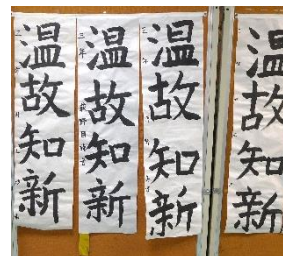 温故知新
温故知新
三年
温故知新
温故知新